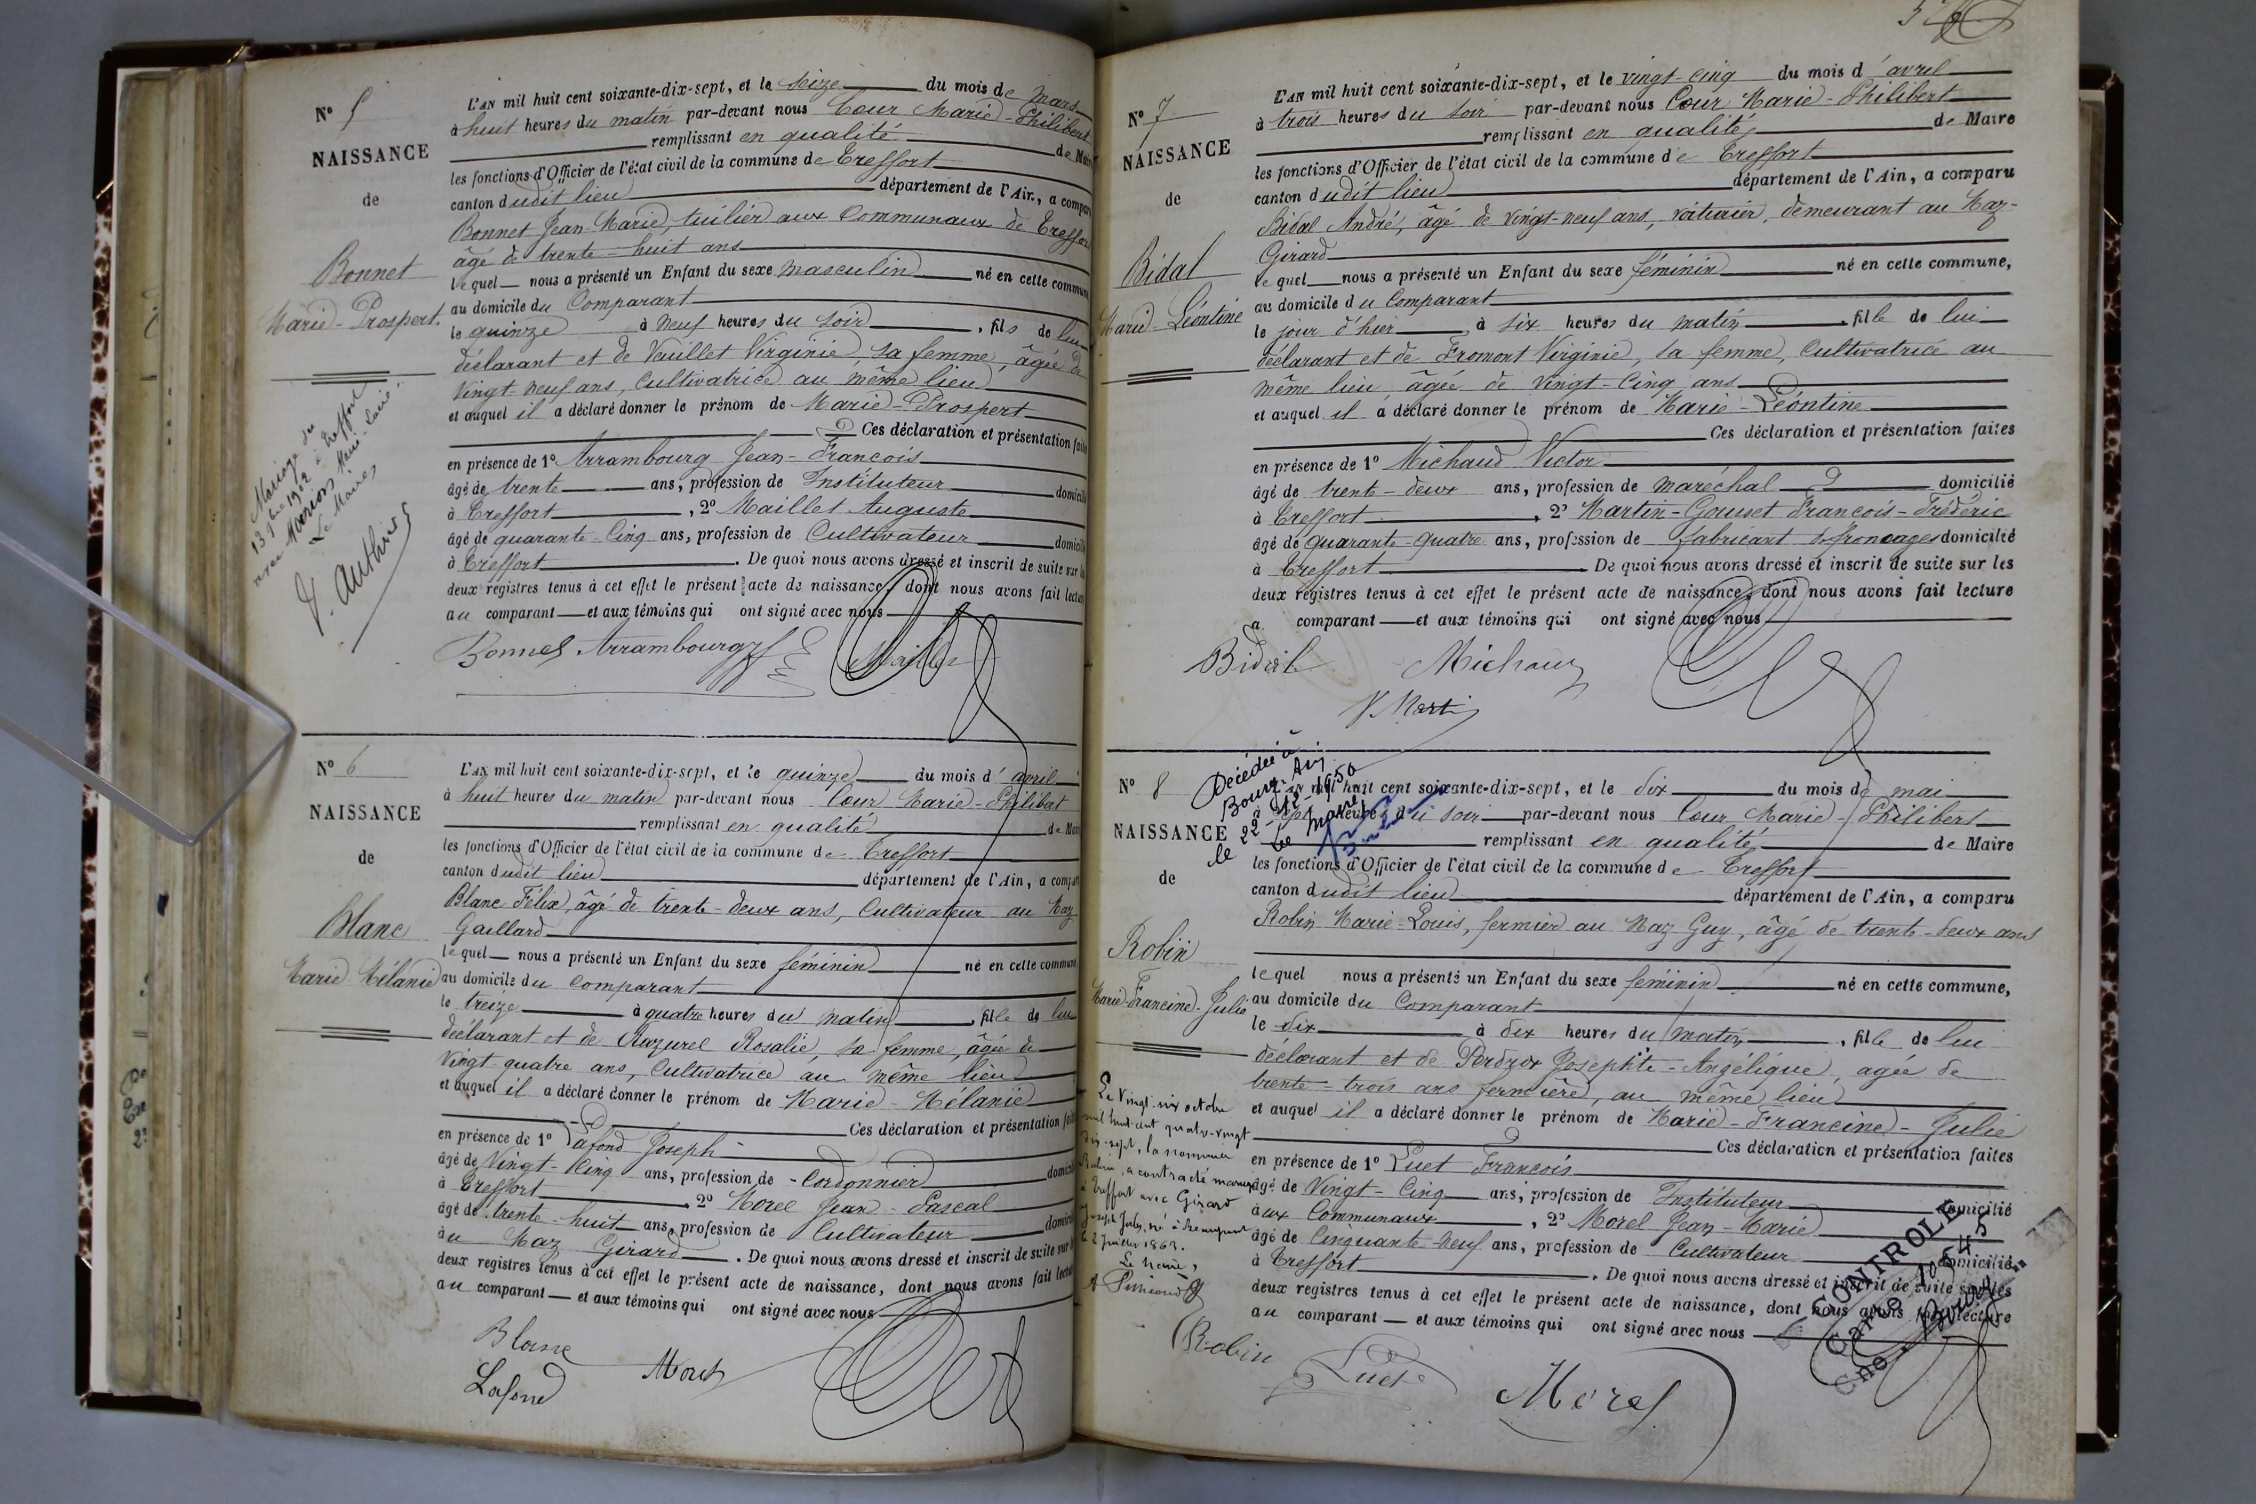 N° 5
NAISSANCE
de
Bonnet
Marie-Prospert.
Mariage du
13 9bre 1902 à Treffort
avec Marion Marie-Louise
Le Maire
V. Authier
L'AN mil huit cent soixante-dix-sept, et le seize du mois de mars
à huit heures du matin par-devant nous Cour Marie-Philibert
remplissant en qualité de Maire
les fonctions d'Officier de l'état civil de la commune de Treffort
canton dudit lieu département de l'Ain, a comparu
Bonnet Jean-Marie, tuilier aux Communaux de Treffort
âgé de trente-huit ans
lequel nous a présenté un Enfant du sexe masculin né en cette commune
au domicile du Comparant
le quinze à neuf heures du soir, fils de lui
déclarant et de Vuillet Virginie, sa femme, âgée de
vingt-neuf ans, Cultivatrice au même lieu
et auquel il a déclaré donner le prénom de Marie-Prospert
Ces déclaration et présentation faites
en présence de 1° Arrambourg Jean-François
âgé de trente ans, profession de Instituteur domicilié
à Treffort, 2° Maillet Auguste
âgé de quarante-cinq ans, profession de Cultivateur domicilié
à Treffort. De quoi nous avons dressé et inscrit de suite sur les
deux registres tenus à cet effet le présent acte de naissance, dont nous avons fait lecture
au comparant et aux témoins qui ont signé avec nous
Bonnet Arrambourg Maillet
N° 6
NAISSANCE
de
Blanc
Marie Mélanie
L'AN mil huit cent soixante-dix-sept, et le quinze du mois d'avril
à huit heures du matin par-devant nous Cour Marie-Philibert
remplissant en qualité de Maire
les fonctions d'Officier de l'état civil de la commune de Treffort
canton dudit lieu département de l'Ain, a comparu
Blanc Félix, âgé de trente-deux ans, Cultivateur au Maz
Gaillard
lequel nous a présenté un Enfant du sexe féminin né en cette commune
au domicile du Comparant
le treize à quatre heures du matin, fille de lui
déclarant et de Razurel Rosalie, sa femme, âgée de
vingt quatre ans, Cultivatrice au même lieu
et auquel il a déclaré donner le prénom de Marie-Mélanie
Ces déclaration et présentation faites
en présence de 1° Lafond Joseph
âgé de Vingt-Cinq ans, profession de Cordonnier domicilié
à Treffort, 2° Morel Jean-Pascal
âgé de trente-huit ans, profession de Cultivateur domicilié
au Maz Girard. De quoi nous avons dressé et inscrit de suite sur les
deux registres tenus à cet effet le présent acte de naissance, dont nous avons fait lecture
au comparant et aux témoins qui ont signé avec nous
Blanc Morel
Lafond
N° 7
NAISSANCE
de
Bidal
Marie-Léontine
L'AN mil huit cent soixante-dix-sept, et le vingt-cinq du mois d'avril
à trois heures du soir par-devant nous Cour Marie-Philibert
remplissant en qualité de Maire
les fonctions d'Officier de l'état civil de la commune de Treffort
canton dudit lieu département de l'Ain, a comparu
Bidal André, âgé de vingt-neuf ans, voiturier, demeurant au Maz-
Girard
lequel nous a présenté un Enfant du sexe féminin né en cette commune,
au domicile du Comparant
le jour d'hier à six heures du matin, fille de lui
déclarant et de Fromont Virginie, sa femme, Cultivatrice au
même lieu, âgée de vingt-cinq ans
et auquel il a déclaré donner le prénom de Marie-Léontine
Ces déclaration et présentation faites
en présence de 1° Michaud Victor
âgé de trente-deux ans, profession de maréchal domicilié
à Treffort, 2° Martin-Gousset François-Frédéric
âgé de quarante-quatre ans, profession de fabricant de fromages domicilié
à Treffort De quoi nous avons dressé et inscrit de suite sur les
deux registres tenus à cet effet le présent acte de naissance, dont nous avons fait lecture
a comparant et aux témoins qui ont signé avec nous
Bidal Michaud
Martin
N° 8
NAISSANCE
de
Robin
Marie-Francine-Julie
Décédée à
Bourg-Ain
le 22-12-1950
Le Maire,
L'AN mil huit cent soixante-dix-sept, et le dix du mois de mai
à sept heures du soir par-devant nous Cour Marie-Philibert
remplissant en qualité de Maire
les fonctions d'Officier de l'état civil de la commune de Treffort
canton dudit lieu département de l'Ain, a comparu
Robin Marie-Louis, fermier au Maz Guy, âgé de trente-deux ans
lequel nous a présenté un Enfant du sexe féminin né en cette commune,
au domicile du Comparant
le dix à dix heures du matin, fille de lui
déclarant et de Perdrix Josephte-Angélique, agée de
trente-trois ans fermière, au même lieu
et auquel il a déclaré donner le prénom de Marie-Francine-Julie
Ces déclaration et présentation faites
en présence de 1° Luet François
âgé de Vingt-Cinq ans, profession de Instituteur domicilié
aux Communaux, 2° Morel Jean-Marie
âgé de Cinquante-neuf ans, profession de Cultivateur domicilié
à Treffort. De quoi nous avons dressé et inscrit de suite sur les
deux registres tenus à cet effet le présent acte de naissance, dont nous avons fait lecture
au comparant et aux témoins qui ont signé avec nous
Le vingt-six octobre
mil huit cent quatre-vingt
dix-sept, la nommée
Robin, a contracté mariage
à Treffort avec Girard
Joseph Jules, né à
le 2 Juillet 1863.
Le Maire,
CONTROLE
Carto 10545
Cne
Robin Luet Morel